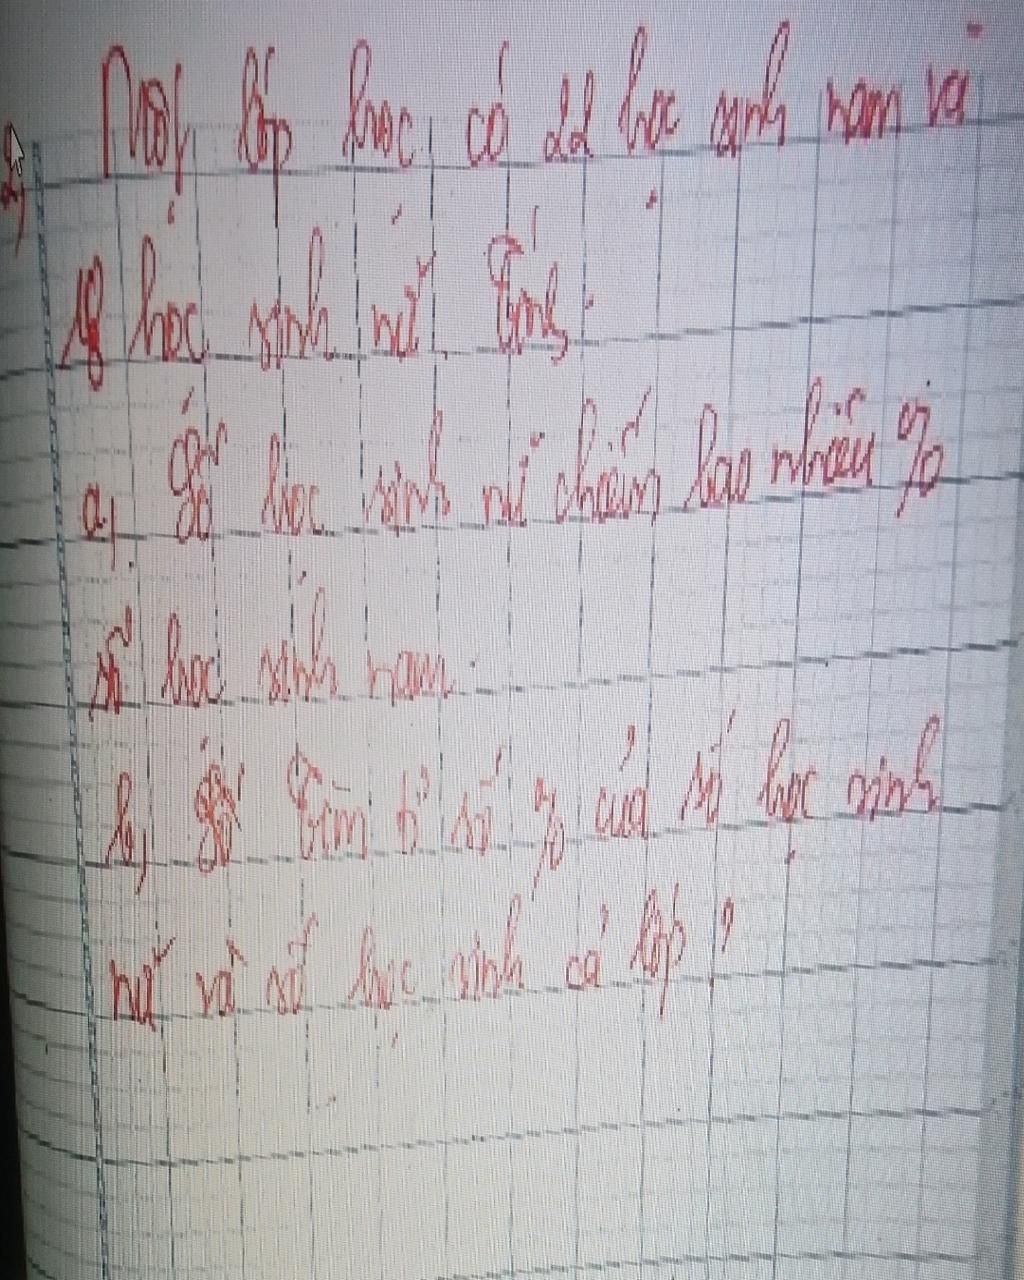 Một lớp học có 22 học sinh nam và
2,
18 học sinh nữ. Tính.
a, Số học sinh nữ chiếm bao nhiêu %
số học sinh nam.
b, Tìm tỉ số % của số học sinh
nữ và số học sinh cả lớp?